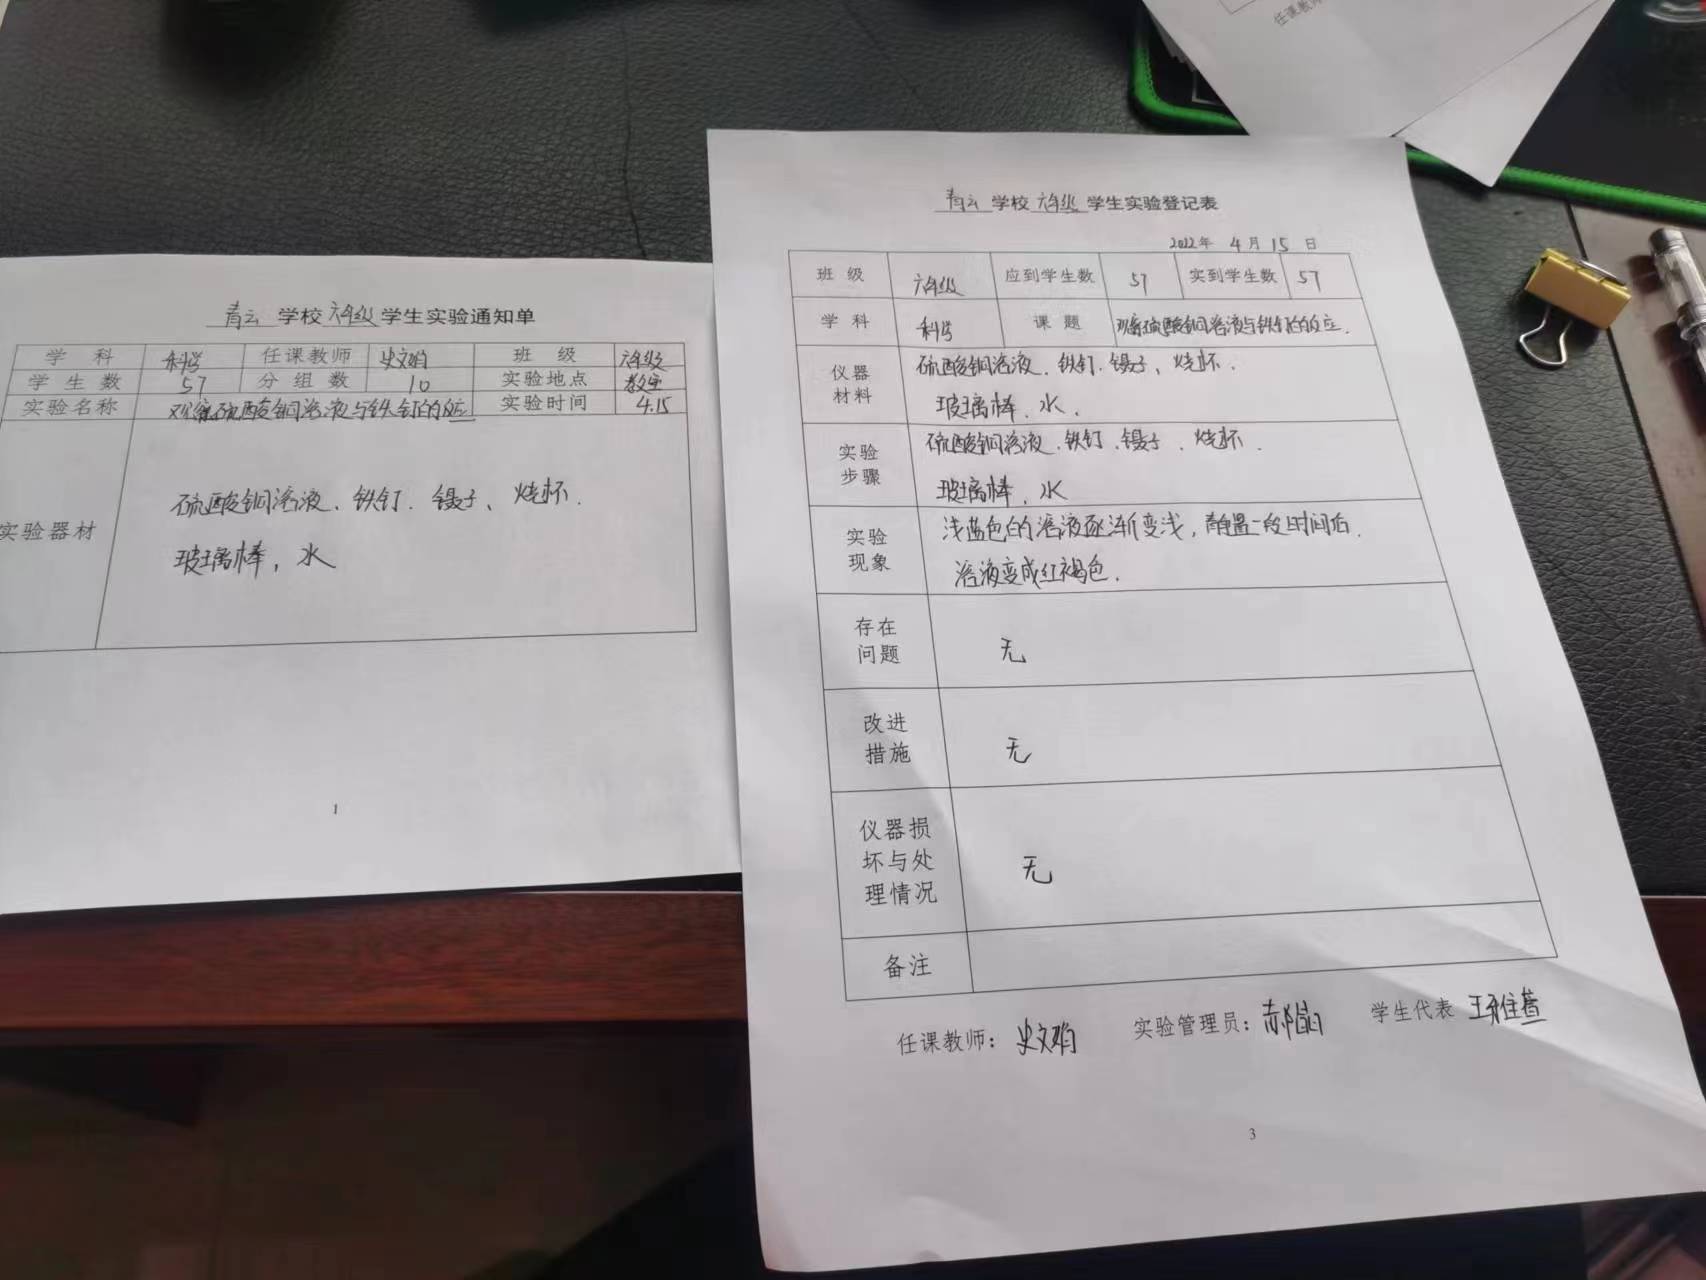 青云 学校 六年级 学生实验通知单
学 科 科学 任课教师 史文娟 班 级 六年级
学 生 数 57 分 组 数 10 实验地点 教室
实验名称 观察硫酸铜溶液与铁钉的反应 实验时间 4.15
实验器材
硫酸铜溶液、铁钉、镊子、烧杯、
玻璃棒,水
1
任课教师
青云 学校 六年级 学生实验登记表
2022年 4月 15 日
班 级 六年级 应到学生数 57 实到学生数 57
学 科 科学 课 题 观察硫酸铜溶液与铁钉的反应.
仪器
材料
硫酸铜溶液、铁钉、镊子、烧杯.
玻璃棒、水、
实验
步骤
硫酸铜溶液、铁钉、镊子、烧杯.
玻璃棒、水
实验
现象
浅蓝色的溶液逐渐变浅,静置一段时间后.
溶液变成红褐色.
存在
问题
无
改进
措施
无
仪器损
坏与处
理情况
无
备注
任课教师: 史文娟 实验管理员: 学生代表
3